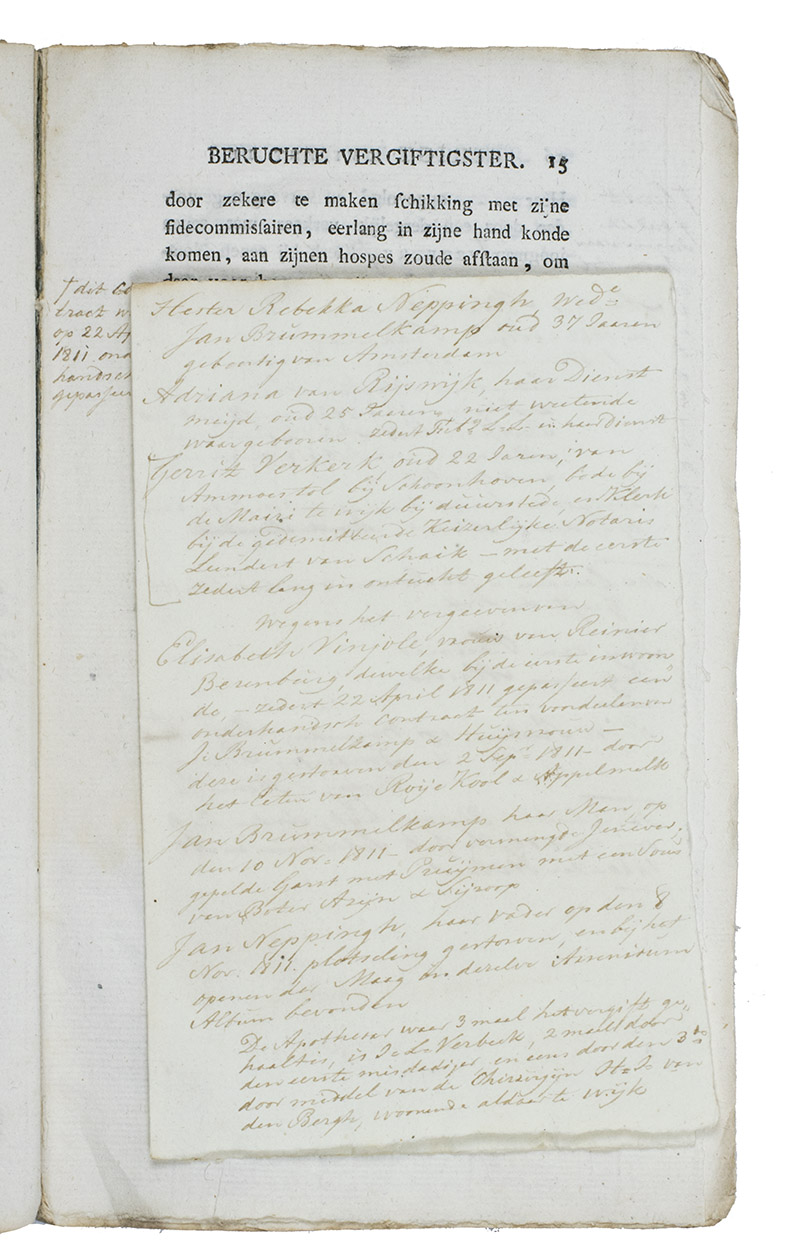 BERUCHTE VERGIFTIGSTER. 15
door zekere te maken ſchikking met zijne
fidecommisſairen, eerlang in zijne hand konde
komen, aan zijnen hospes zoude afſtaan, om
† dit Co
tract w
op 22 Ap
1811 ond
handsch
gepasseer
Hester Rebekka Neppingh, Wede
Jan Brummelkamp oud 37 Jaaren
geboortig van Amsterdam
Adriana van Rijswijk, haar Dienst
meijd, oud 25 Jaaren, niet weetende
waar gebooren zedert Febr. in haar dienst
Gerrit Verkerk, oud 22 Jaren, van
Ammerstol bij Schoonhoven, bode bij
de Mairi te wijk bij duurstede, en Klerk
bij de Keizerlijke Notaris
Leendert van Schaik – met de eerste
zedert lang in ontucht geleeft.
wegens het vergeeven van
Elisabeth Vinjole, vrouw van Reinier
Berenburg, dewelke bij de eerste inwoon
de, – zedert 22 April 1811 gepasseert een
onderhandsch Contract ten voordeele van
J. Brummelkamp & Huijsvrouw –
deze is gestorven den 2 Sepr. 1811 – door
het Eeten van Roije Kool & Appelmelk
Jan Brummelkamp haar Man, op
den 10 Nov. 1811 – door vermengde Jenever,
gepelde Garst met Pruijmen met een Sous
van Boter Azijn & Sijroop
Jan Neppingh, haar vader op den 8
Nov. 1811 plotseling gestorven, en bij het
openen der Maag in dezelve Arsenicum
Album bevonden
De Apothecar waar 3 maal het vergift ge-
haalt is, is Verbeek, 2 maal door
den eerste misdadiger en eens door den 3de
door middel van de Chirurgijn H. J. van
den Bergh, woonende aldaar te wijk